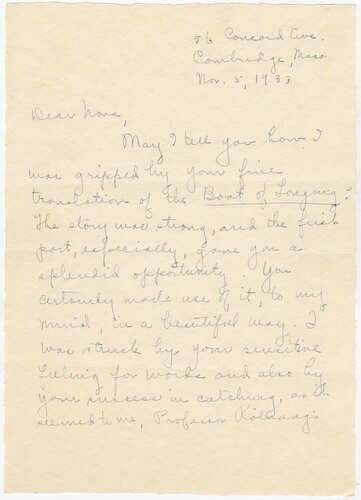 56 Concord Ave.
Cambridge, Mass
Nov. 5, 1933
Dear Nora,
May I tell you how I
was gripped by your fine
translation of the Boat of Longing?
The story was strong, and the first
part, especially, gave you a
splendid opportunity. You
certainly made use of it, to my
mind, in a beautiful way. I
was struck by your sensitive
feeling for words and also by
your success in catching, as it
seemed to me, Professor Rölvaag's